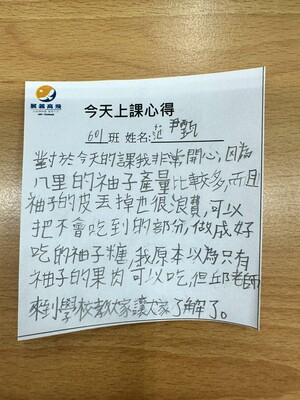 展翅高飛
今天上課心得
601班 姓名:范尹甄
對於今天的課我非常開心,因為
八里的柚子產量比較多,而且
柚子的皮丟掉也很浪費,可以
把不會吃到的部分,做成好
吃的柚子糖,我原本以為只有
柚子的果肉可以吃,但邱老師
來到學校教大家讓大家了解了。